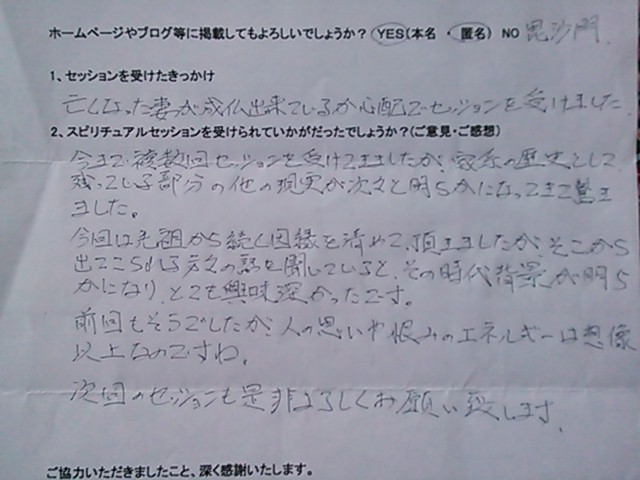 ホームページやブログ等に掲載してもよろしいでしょうか? YES(本名 ・ 匿名) NO 毘沙門
1、セッションを受けたきっかけ
亡くなった妻が成仏出来ているか心配でセッションを受けました
2、スピリチュアルセッションを受けられていかがだったでしょうか?(ご意見・ご感想)
今まで複数回セッションを受けてきましたが、家系の歴史として
残っている部分の他の現実が次々と明らかになってきて驚き
ました。
今回は先祖から続く因縁を清めて頂きましたが、そこから
出てこられる方々の話を聞いていると、その時代背景が明ら
かになり、とても興味深かったです。
前回もそうでしたが、人の思いや恨みのエネルギーは想像
以上なのですね。
次回のセッションも是非よろしくお願い致します。
ご協力いただきましたこと、深く感謝いたします。